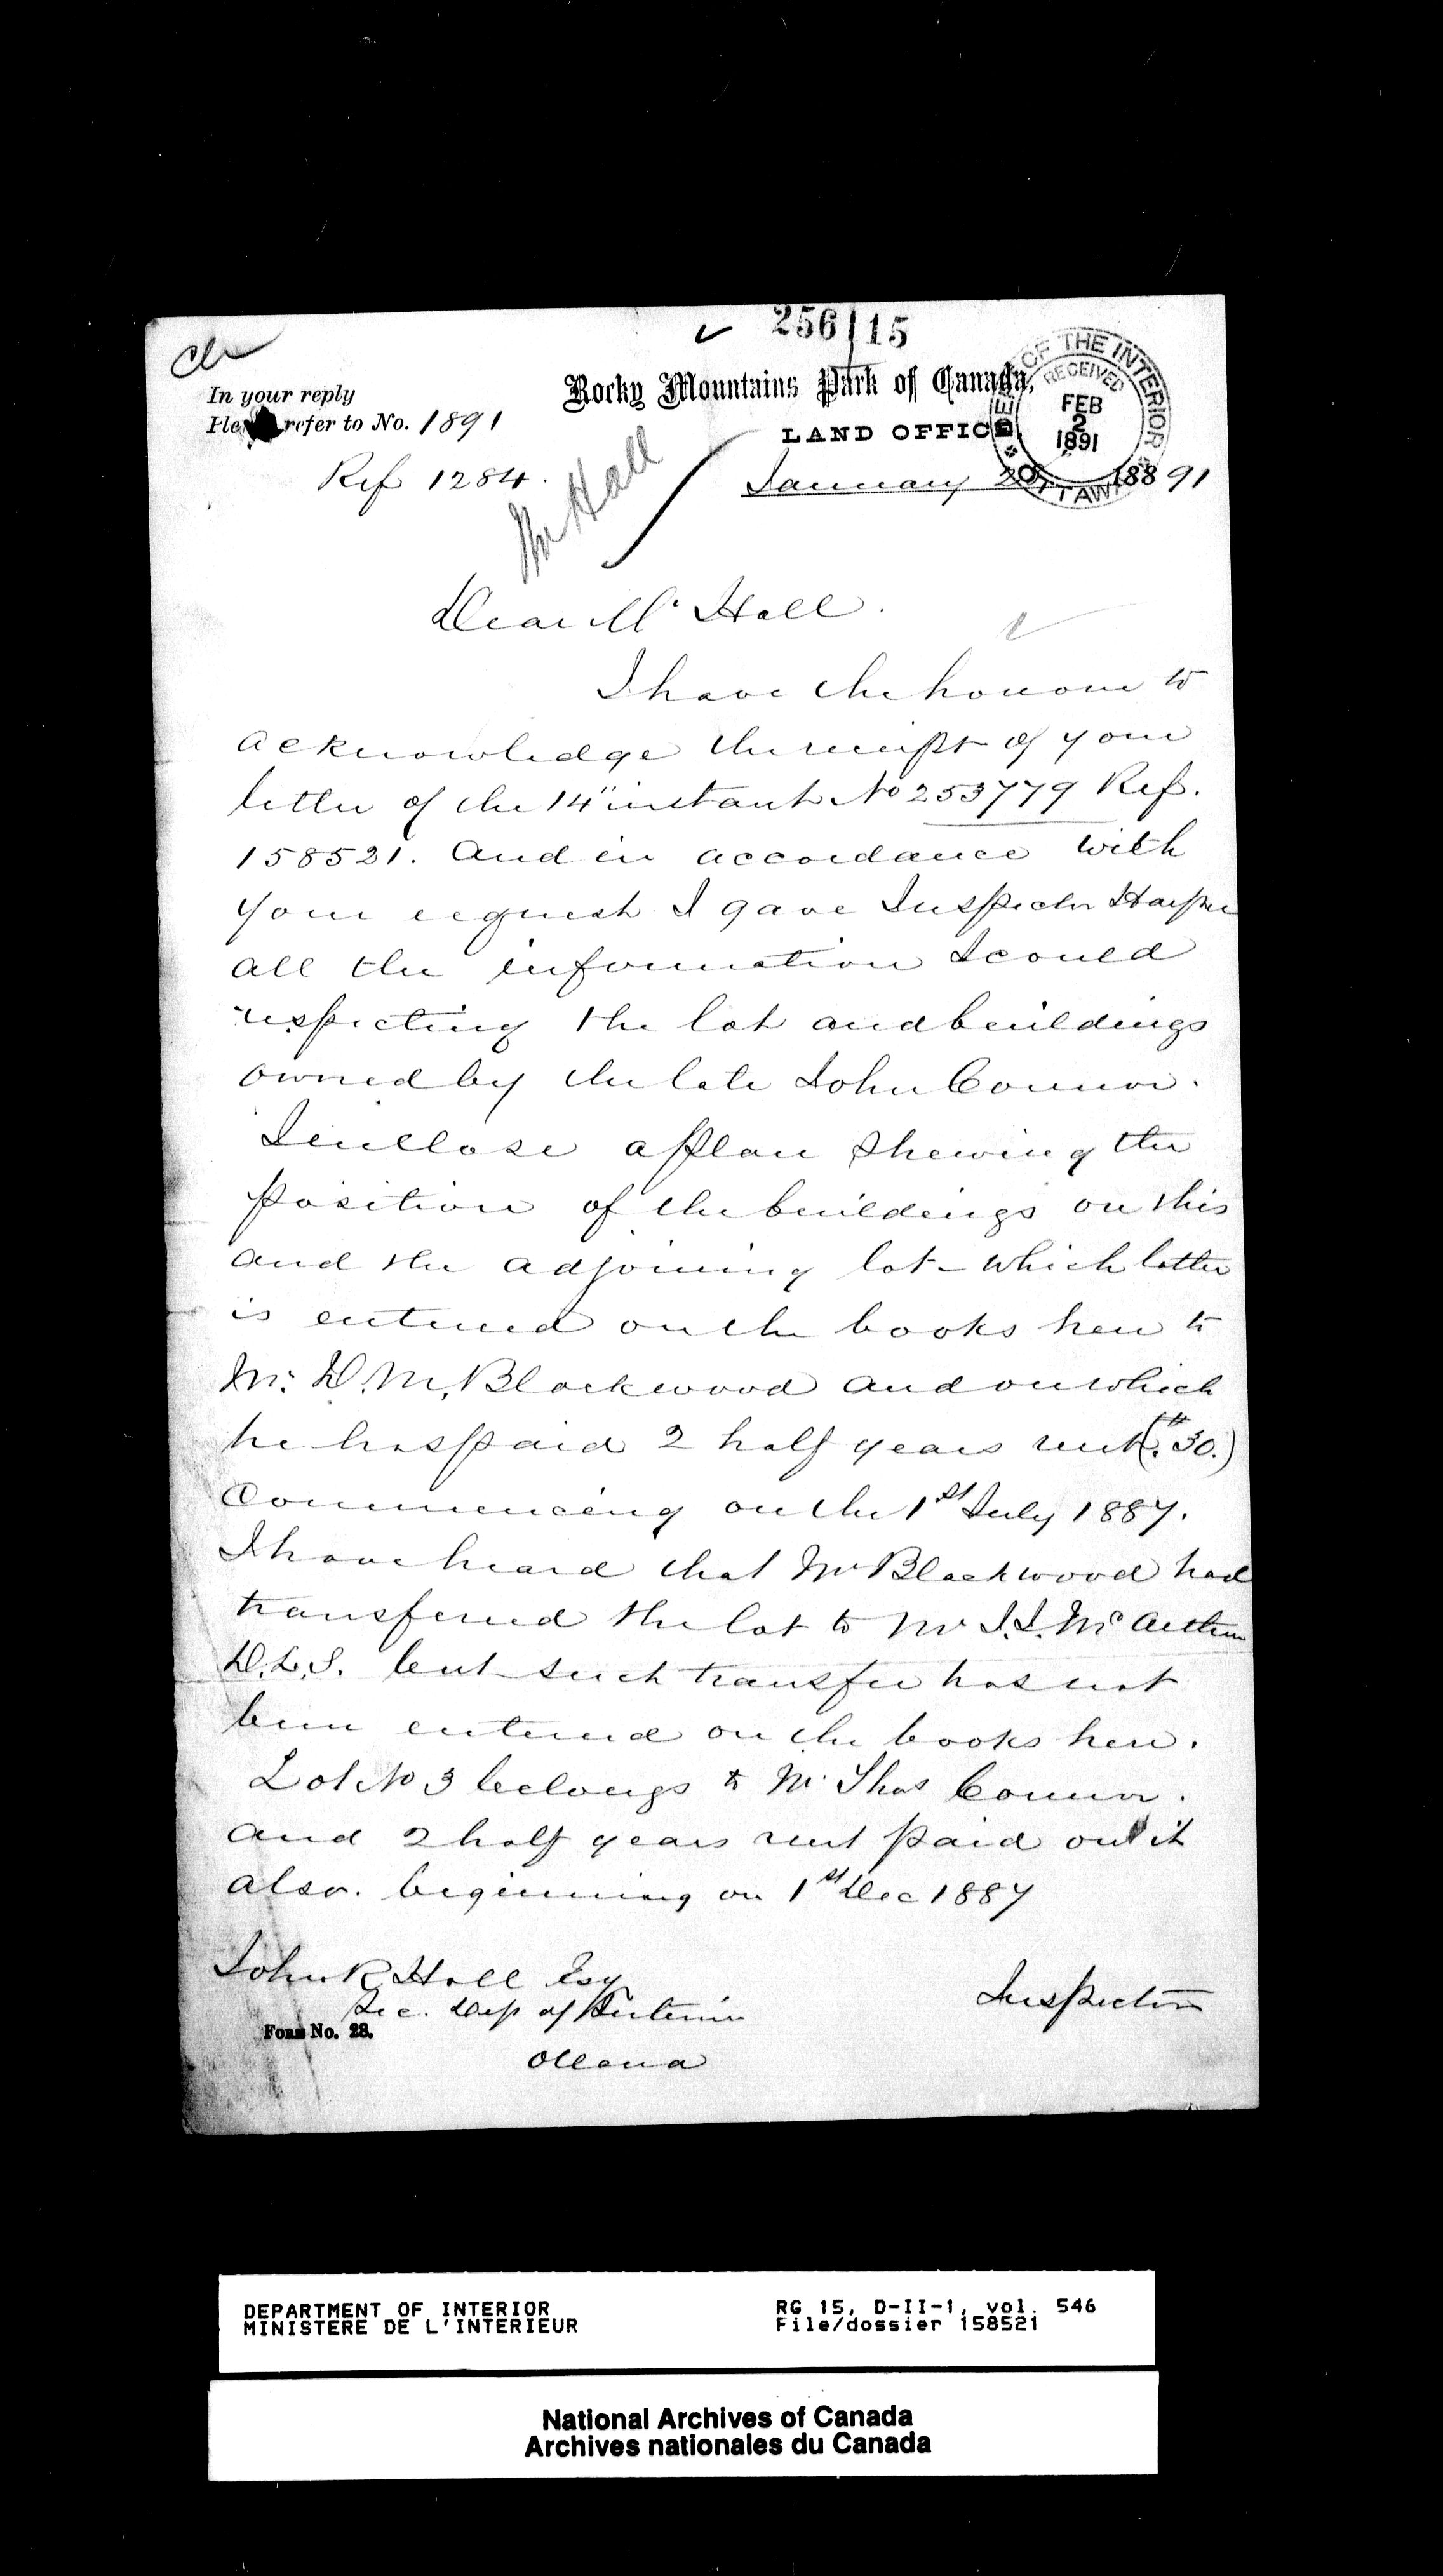 256115
Rocky Mountains Park of Canada,
LAND OFFICE
In your reply
refer to No. 1891
Ref 1284.
DEP OF THE INTERIOR
RECEIVED
FEB
2
1891
OTTAWA
January 188 91
Mr Hall
Dear Mr Hall.
I have the honour to
acknowledge the receipt of your
letter of the 14" instant No 253779 Ref.
158521. And in accordance with
your request I gave Inspector Harper
all the information I could
respecting the lot and buildings
owned by the late John Connor.
I enclose a plan shewing the
position of the buildings on this
and the adjoining lot - which latter
is entered on the books here to
Mr. D. M. Blackwood and on which
he has paid 2 half years rent ($30.)
Commencing on the 1st July 1887.
I have heard that Mr Blackwood had
transferred the lot to Mr J. J. McArthur
D.L.S. but such transfer has not
been entered on the books here.
Lot No 3 belongs to Mr Thos Connor.
and 2 half years rent paid on it
also. beginning on 1st Dec 1887
John R Hall Esq
Sec. Dep of Interior
Ottawa
Inspector
Form No. 28.
DEPARTMENT OF INTERIOR
MINISTERE DE L'INTERIEUR
RG 15, D-II-1, vol. 546
File/dossier 158521
National Archives of Canada
Archives nationales du Canada